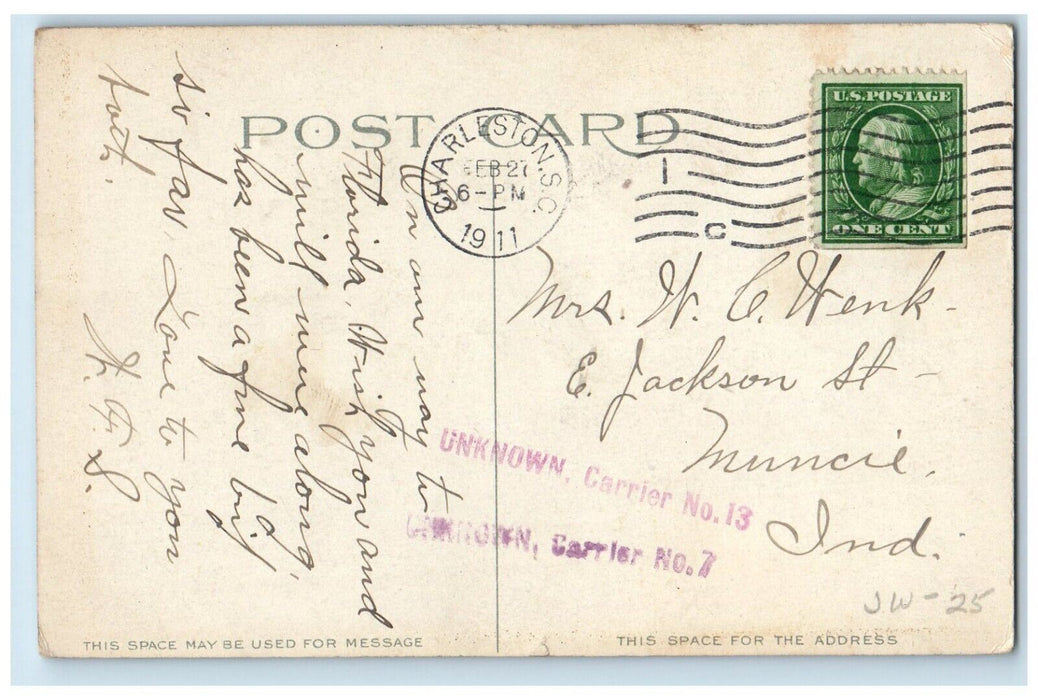 POST CARD
CHARLESTON, S.C.
FEB 27
6-PM
1911
1
C
U.S. POSTAGE
ONE CENT
On our way to
Florida. Wish you and
will were along,
has been a fine trip
so far. Love to you
both.
H. F. S.
Mrs. W. C. Wenk-
E. Jackson St-
Muncie.
Ind.
UNKNOWN, Carrier No. 13
UNKNOWN, Carrier No. 7
JW-25
THIS SPACE MAY BE USED FOR MESSAGE
THIS SPACE FOR THE ADDRESS